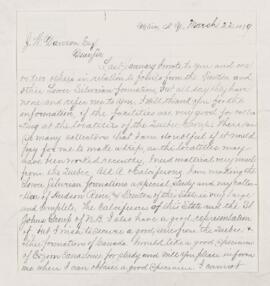 March 22 1879
J. W. Dawson Esq
Dear Sir
I wrote to you and one
or two others in relation to fossils from the and
other Lower Silurian formations but all say they have
none and refer me to you. I will thank you for the
information, if the facilities are very good for
at the localities of the Quebec Group. There
so many collectors that I am doubtful if it would
pay for me to make a trip, as the localities may
have been worked recently. I need material very much
from the Quebec. I am making the
Lower Silurian formations a special study and my
of Hudson River & Trenton of this state is very large
and complete, the Calciferous of this State and the St
Johns Group of N.B. I also have a good representation
of but I mean to secure a good from the Quebec &
other formations of Canada. I would like a good specimen
of Eozoon Canadense for study and will you please inform
me where I can obtain a good specimen. I cannot